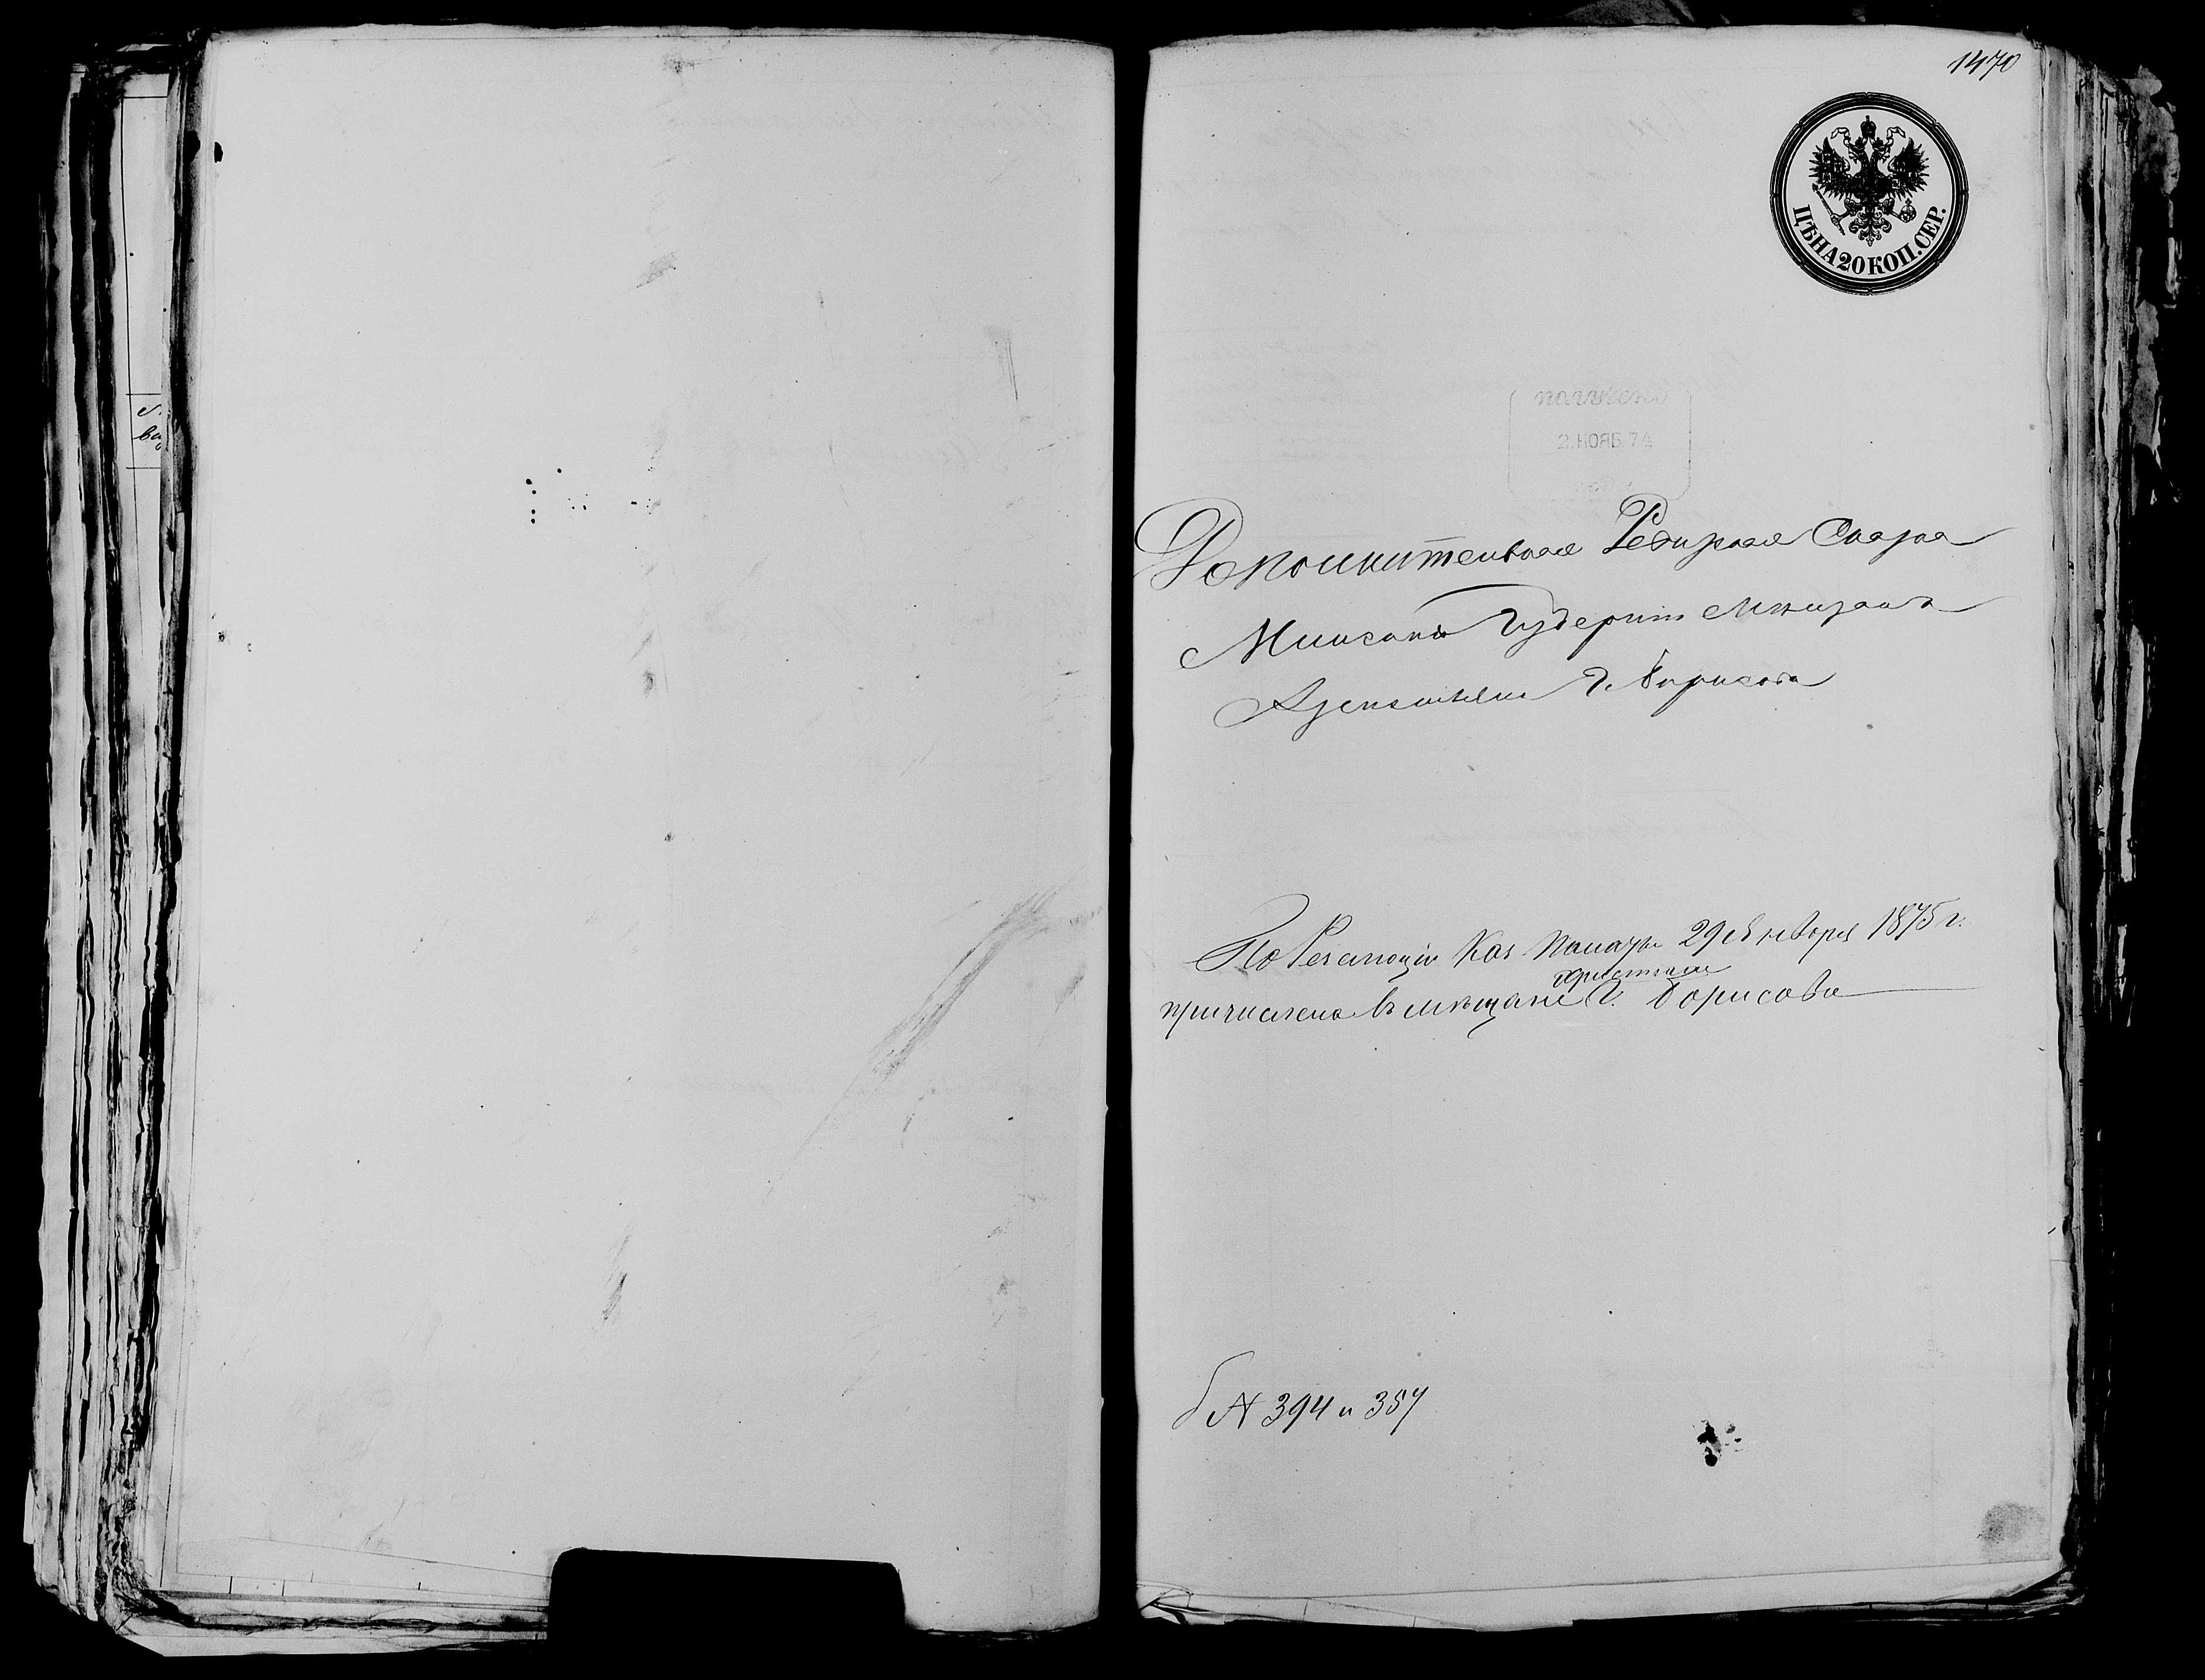 1470
ЦѢНА 20 КОП. СЕР.
получено
2. НОЯБ. 74
Дополнительная Ревизская Сказка
Минской Губерніи Мѣщанъ
г. Борисова
По Резолюціи Каз Палаты 29 Января 1875 г.
христіане
причислена въ мѣщане г. Борисова
№ 394 и 357